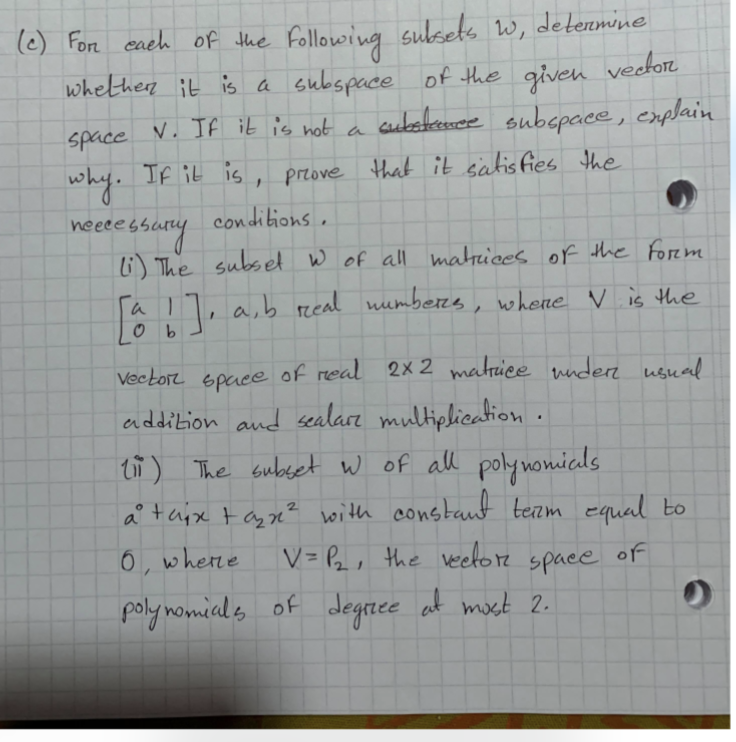 (c) For each of the following subsets W, determine
whether it is a subspace of the given vector
space V. If it is not a substance subspace, explain
why. If it is, prove that it satisfies the
necessary conditions.
(i) The subset W of all matrices of the form
[a 1
0 b], a,b real numbers, where V is the
vector space of real 2x2 matrice under usual
addition and scalar multiplication.
(ii) The subset W of all polynomials
a⁰ + a₁x + a₂x² with constant term equal to
0, where V = P₂, the vector space of
polynomials of degree at most 2.